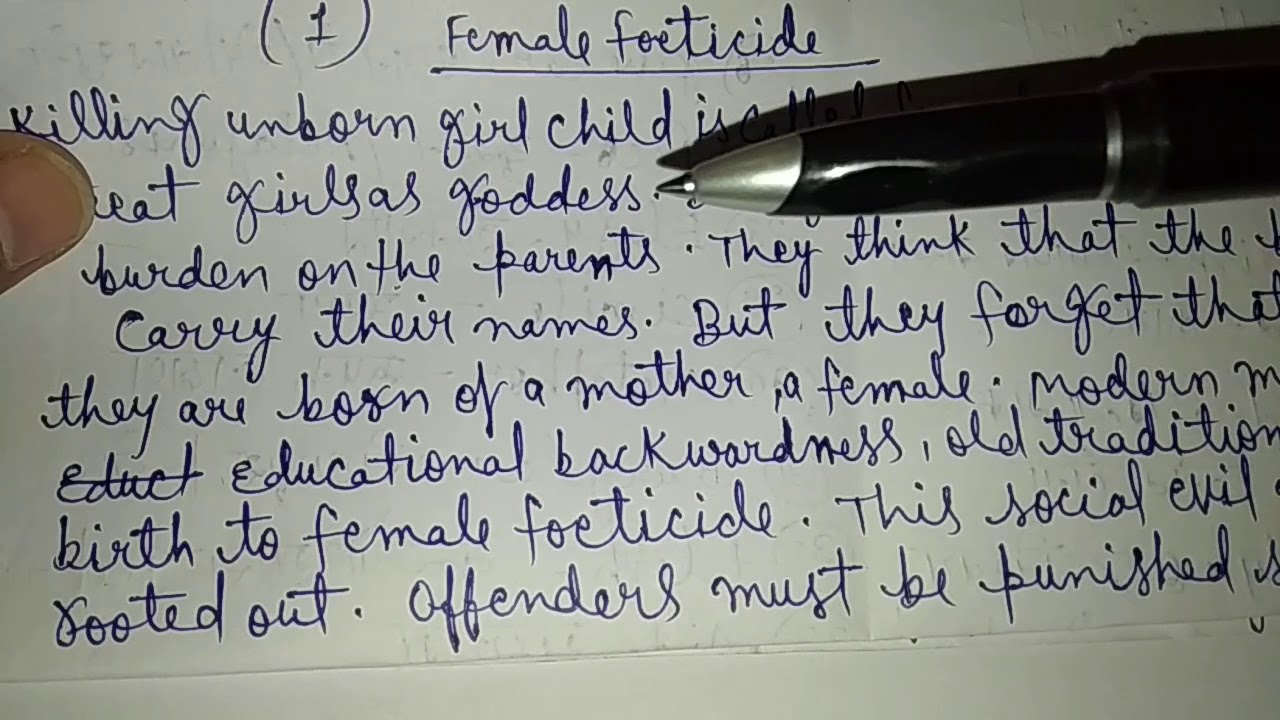 (1) Female foeticide
Killing unborn girl child is
girls as goddess.
burden on the parents. They think that the
Carry their names. But they forget that
they are born of a mother, a female. modern
Educt Educational backwardness, old tradition
birth to female foeticide. This social evil
rooted out. Offenders must be punished